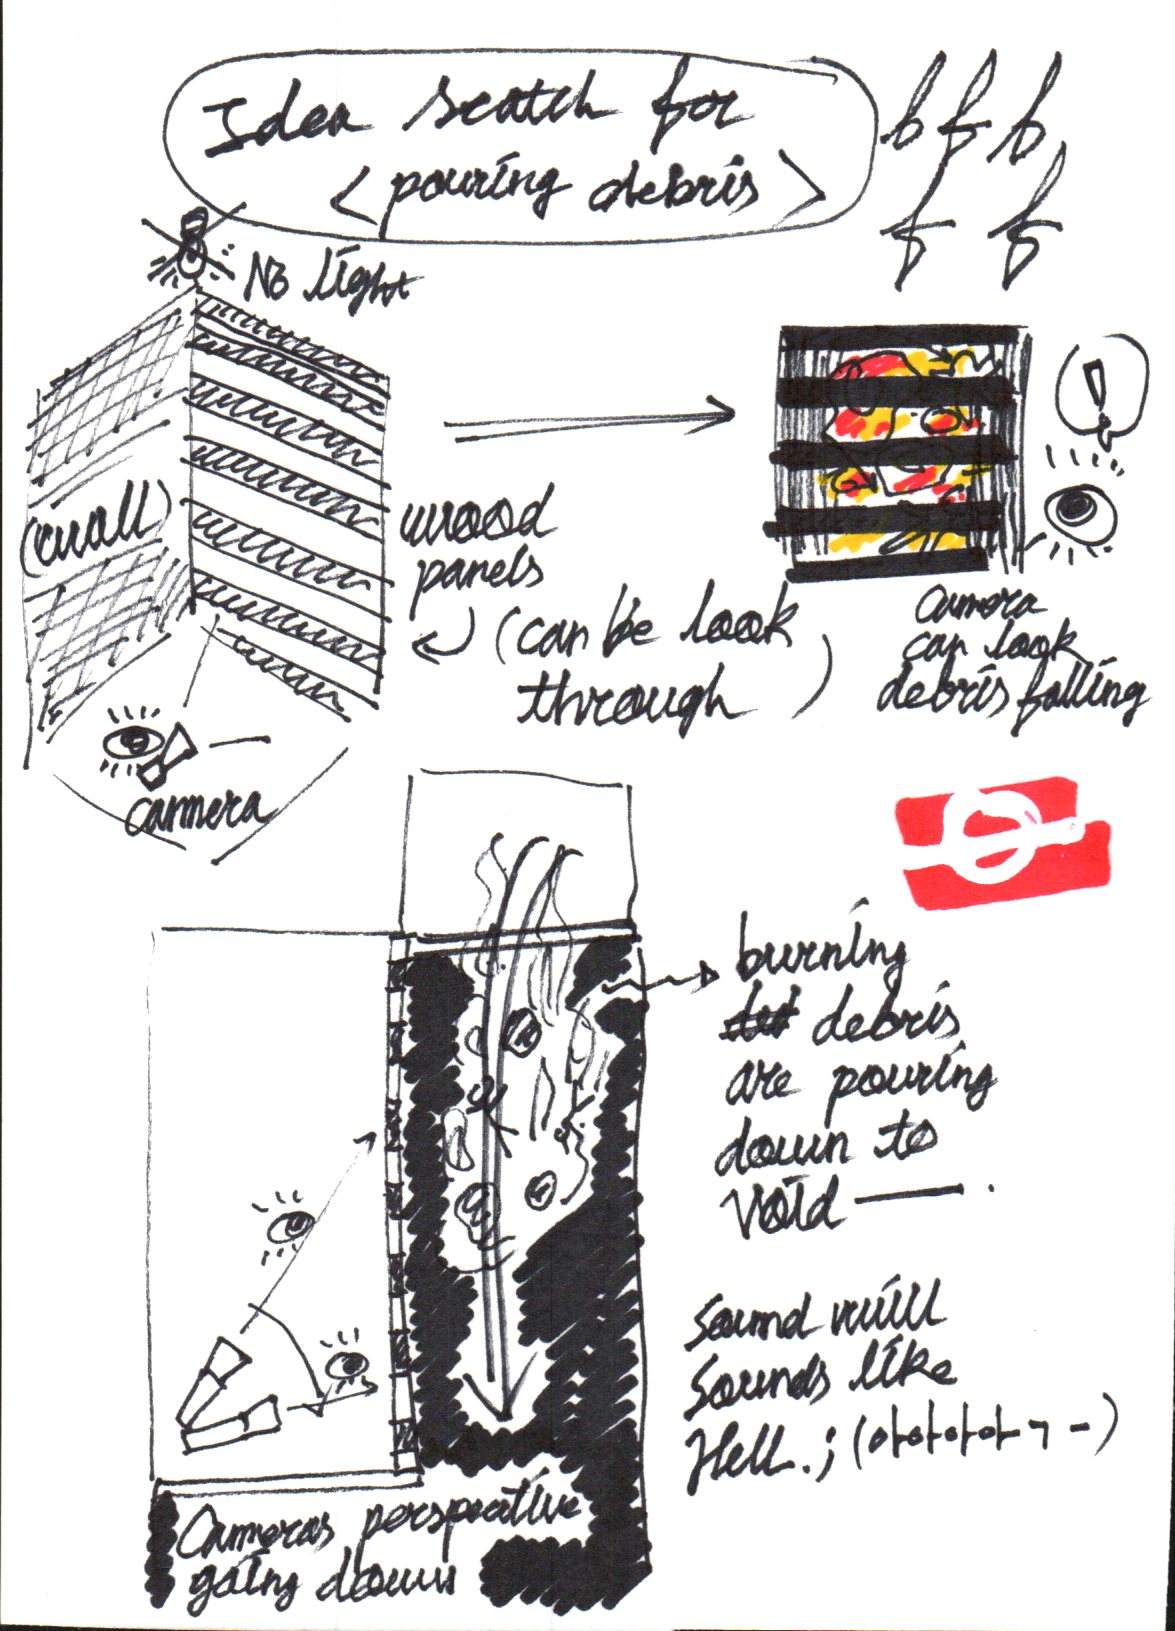 Idea scatch for
<pouring debris>
f f f
f f
No light
(wall)
wood
panels
(can be look
through)
camera
camera
can look
debris falling
burning
debris
are pouring
down to
void —.
Sound will
sounds like
Hell.; (아아아아ㄱ-)
Cameras perspective
going down